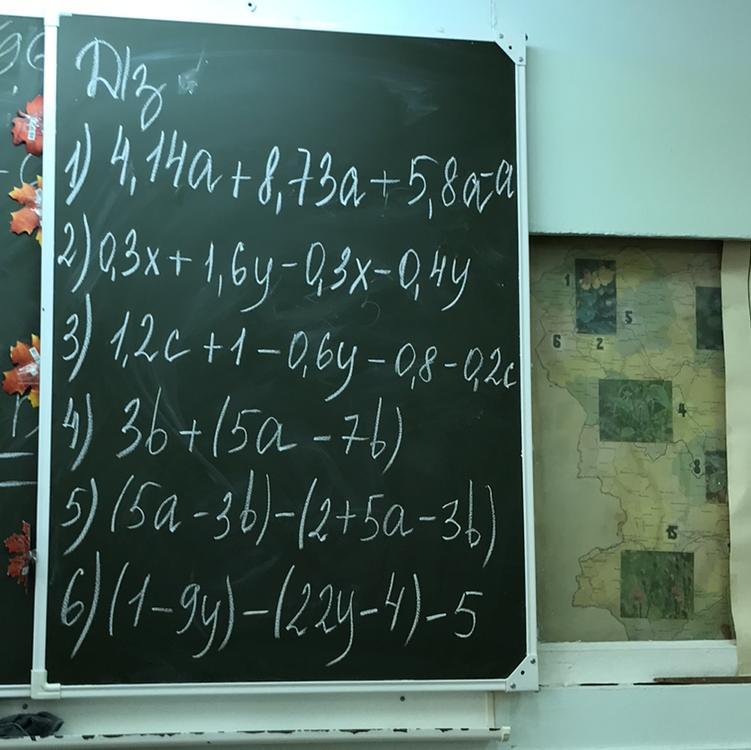 Д/з
1) 4,14a + 8,73a + 5,8a - a
2) 0,3x + 1,6y - 0,3x - 0,4y
3) 1,2c + 1 - 0,6y - 0,8 - 0,2c
4) 3b + (5a - 7b)
5) (5a - 3b) - (2 + 5a - 3b)
6) (1 - 9y) - (22y - 4) - 5
1
5
6
2
4
8
15